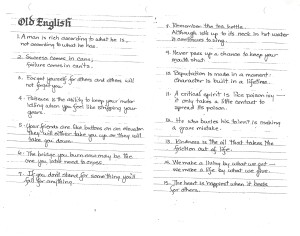 Old English
1. A man is rich according to what he is,
not according to what he has.
2. Success comes in cans,
failure comes in can'ts.
3. Forget yourself for others and others will
not forget you.
4. Patience is the ability to keep your motor
idling when you feel like stripping your
gears.
5. Your friends are like buttons on an elevator
They will either take you up or they will
take you down.
6. The bridge you burn now may be the
one you later need to cross.
7. If you don't stand for something you'll
fall for anything.
Remember the tea kettle.
Although up to its neck in hot water
it continues to sing.
Never pass up a chance to keep your
mouth shut.
Reputation is made in a moment
character is built in a lifetime.
11. A critical spirit is like poison ivy —
it only takes a little contact to
spread its poison.
12. He who buries his talent is making
a grave mistake.
13. Kindness is the oil that takes the
friction out of life.
14. We make a living by what we get —
we make a life by what we give.
15. The heart is happiest when it beats
for others.